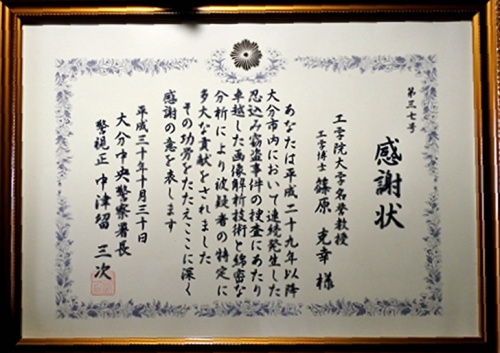 第三七号
感謝状
工学院大学名誉教授
工学博士 篠原克幸様
あなたは平成二十九年以降
大分市内において連続発生した
忍込み窃盗事件の捜査にあたり
卓越した画像解析技術と綿密な
分析により被疑者の特定に
多大な貢献をされました
その功労をたたえここに深く
感謝の意を表します
平成三十年十月三十日
大分中央警察署長
警視正 中津留三次